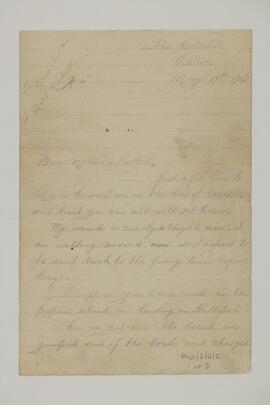 The
Cairo.
May 17th 1915
Dear Mother & Father,
Just a few lines to
let you know I am in the best of
and trust you are all well at home.
My wound is nearly alright now. I
am walking around, and so I expect to
be sent back to the firing line before
long.
I suppose you have read in the
papers about our landing in Gallipoli
When we got near the beach we
jumped out of the boats and charged
1 of 5